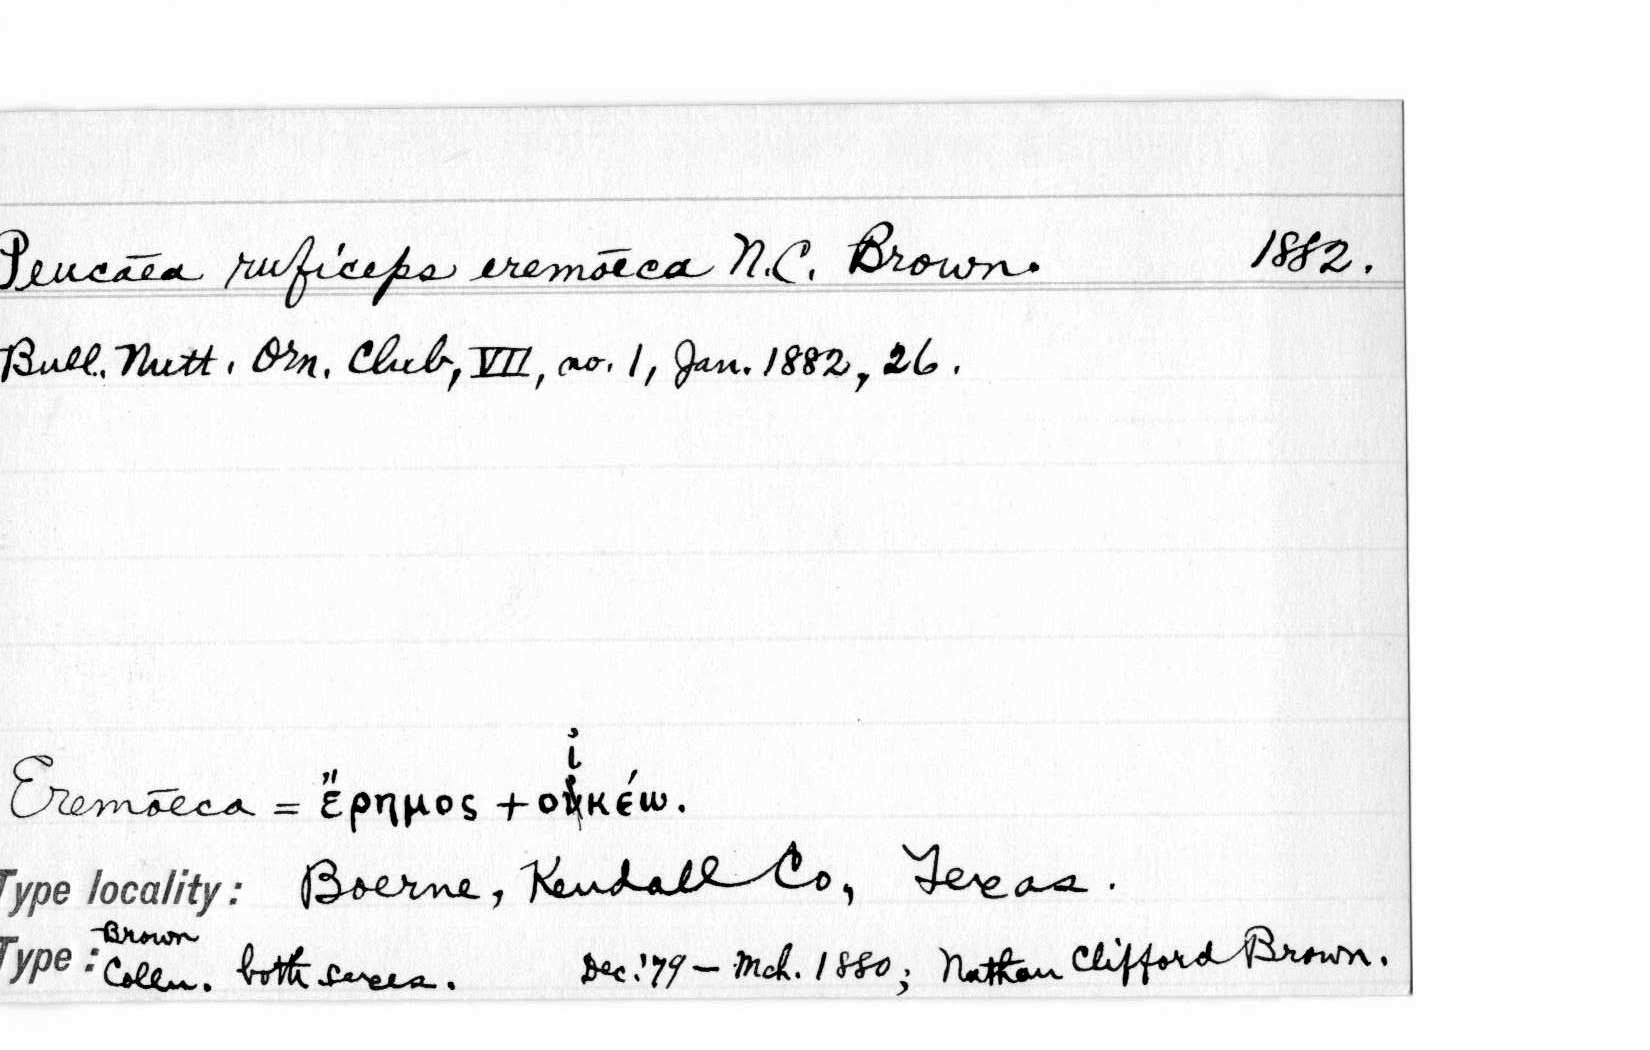 Peucæa ruficeps eremœca N.C. Brown. 1882.
Bull. Nutt. Orn. Club, VII, no. 1, Jan. 1882, 26.
Eremœca = ἔρημος + οἰκέω.
Type locality: Boerne, Kendall Co, Texas.
Type: Brown Colln. both sexes. Dec. '79 – Mch. 1880; Nathan Clifford Brown.